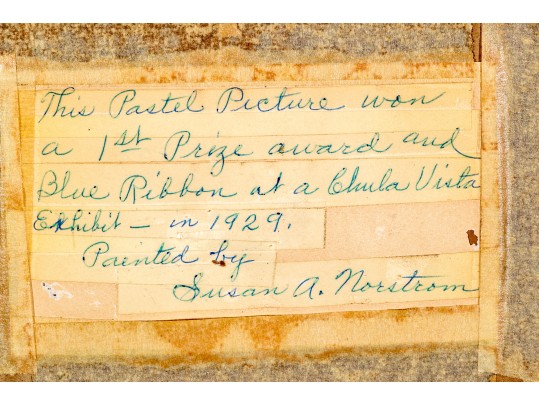 This Pastel Picture won
a 1st Prize award and
Blue Ribbon at a Chula Vista
Exhibit – in 1929.
Painted by
Susan A. Norstrom